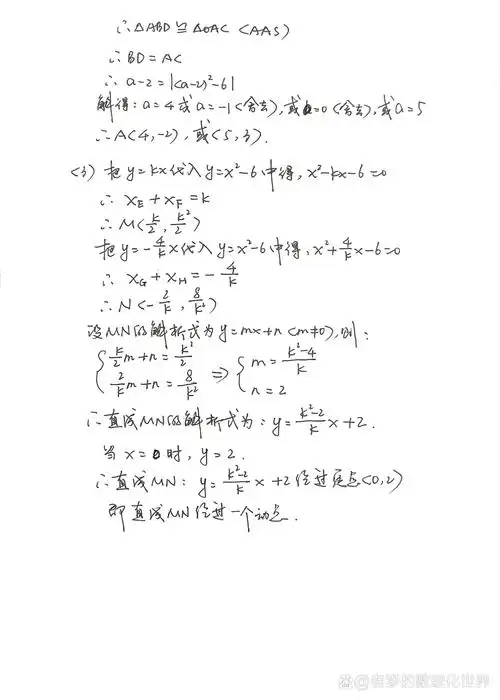 ∴△ABD≌△OAC (AAS)
∴BD=AC
∴ a-2=|(a-2)²-6|
解得:a=4或a=-1(舍去),或a=0(舍去),或a=5
∴A(4,-2),或(5,3).
(3) 把y=kx代入y=x²-6中得,x²-kx-6=0
∴ x_E+x_F=k
∴M(k/2, k²/2)
把y=-4/k x代入y=x²-6中得,x²+4/k x-6=0
∴ x_G+x_H=-4/k
∴N(-2/k, 8/k²)
设MN的解析式为y=mx+n(m≠0),则:
{k/2 m+n=k²/2 ⇒ {m=k²-4/k
2/k m+n=8/k² n=2
∴直线MN的解析式为:y=k²-2/k x+2.
当x=0时,y=2.
∴直线MN:y=k²-2/k x+2经过定点(0,2)
即直线MN经过一个动点.
知乎 @老岁的数理化世界